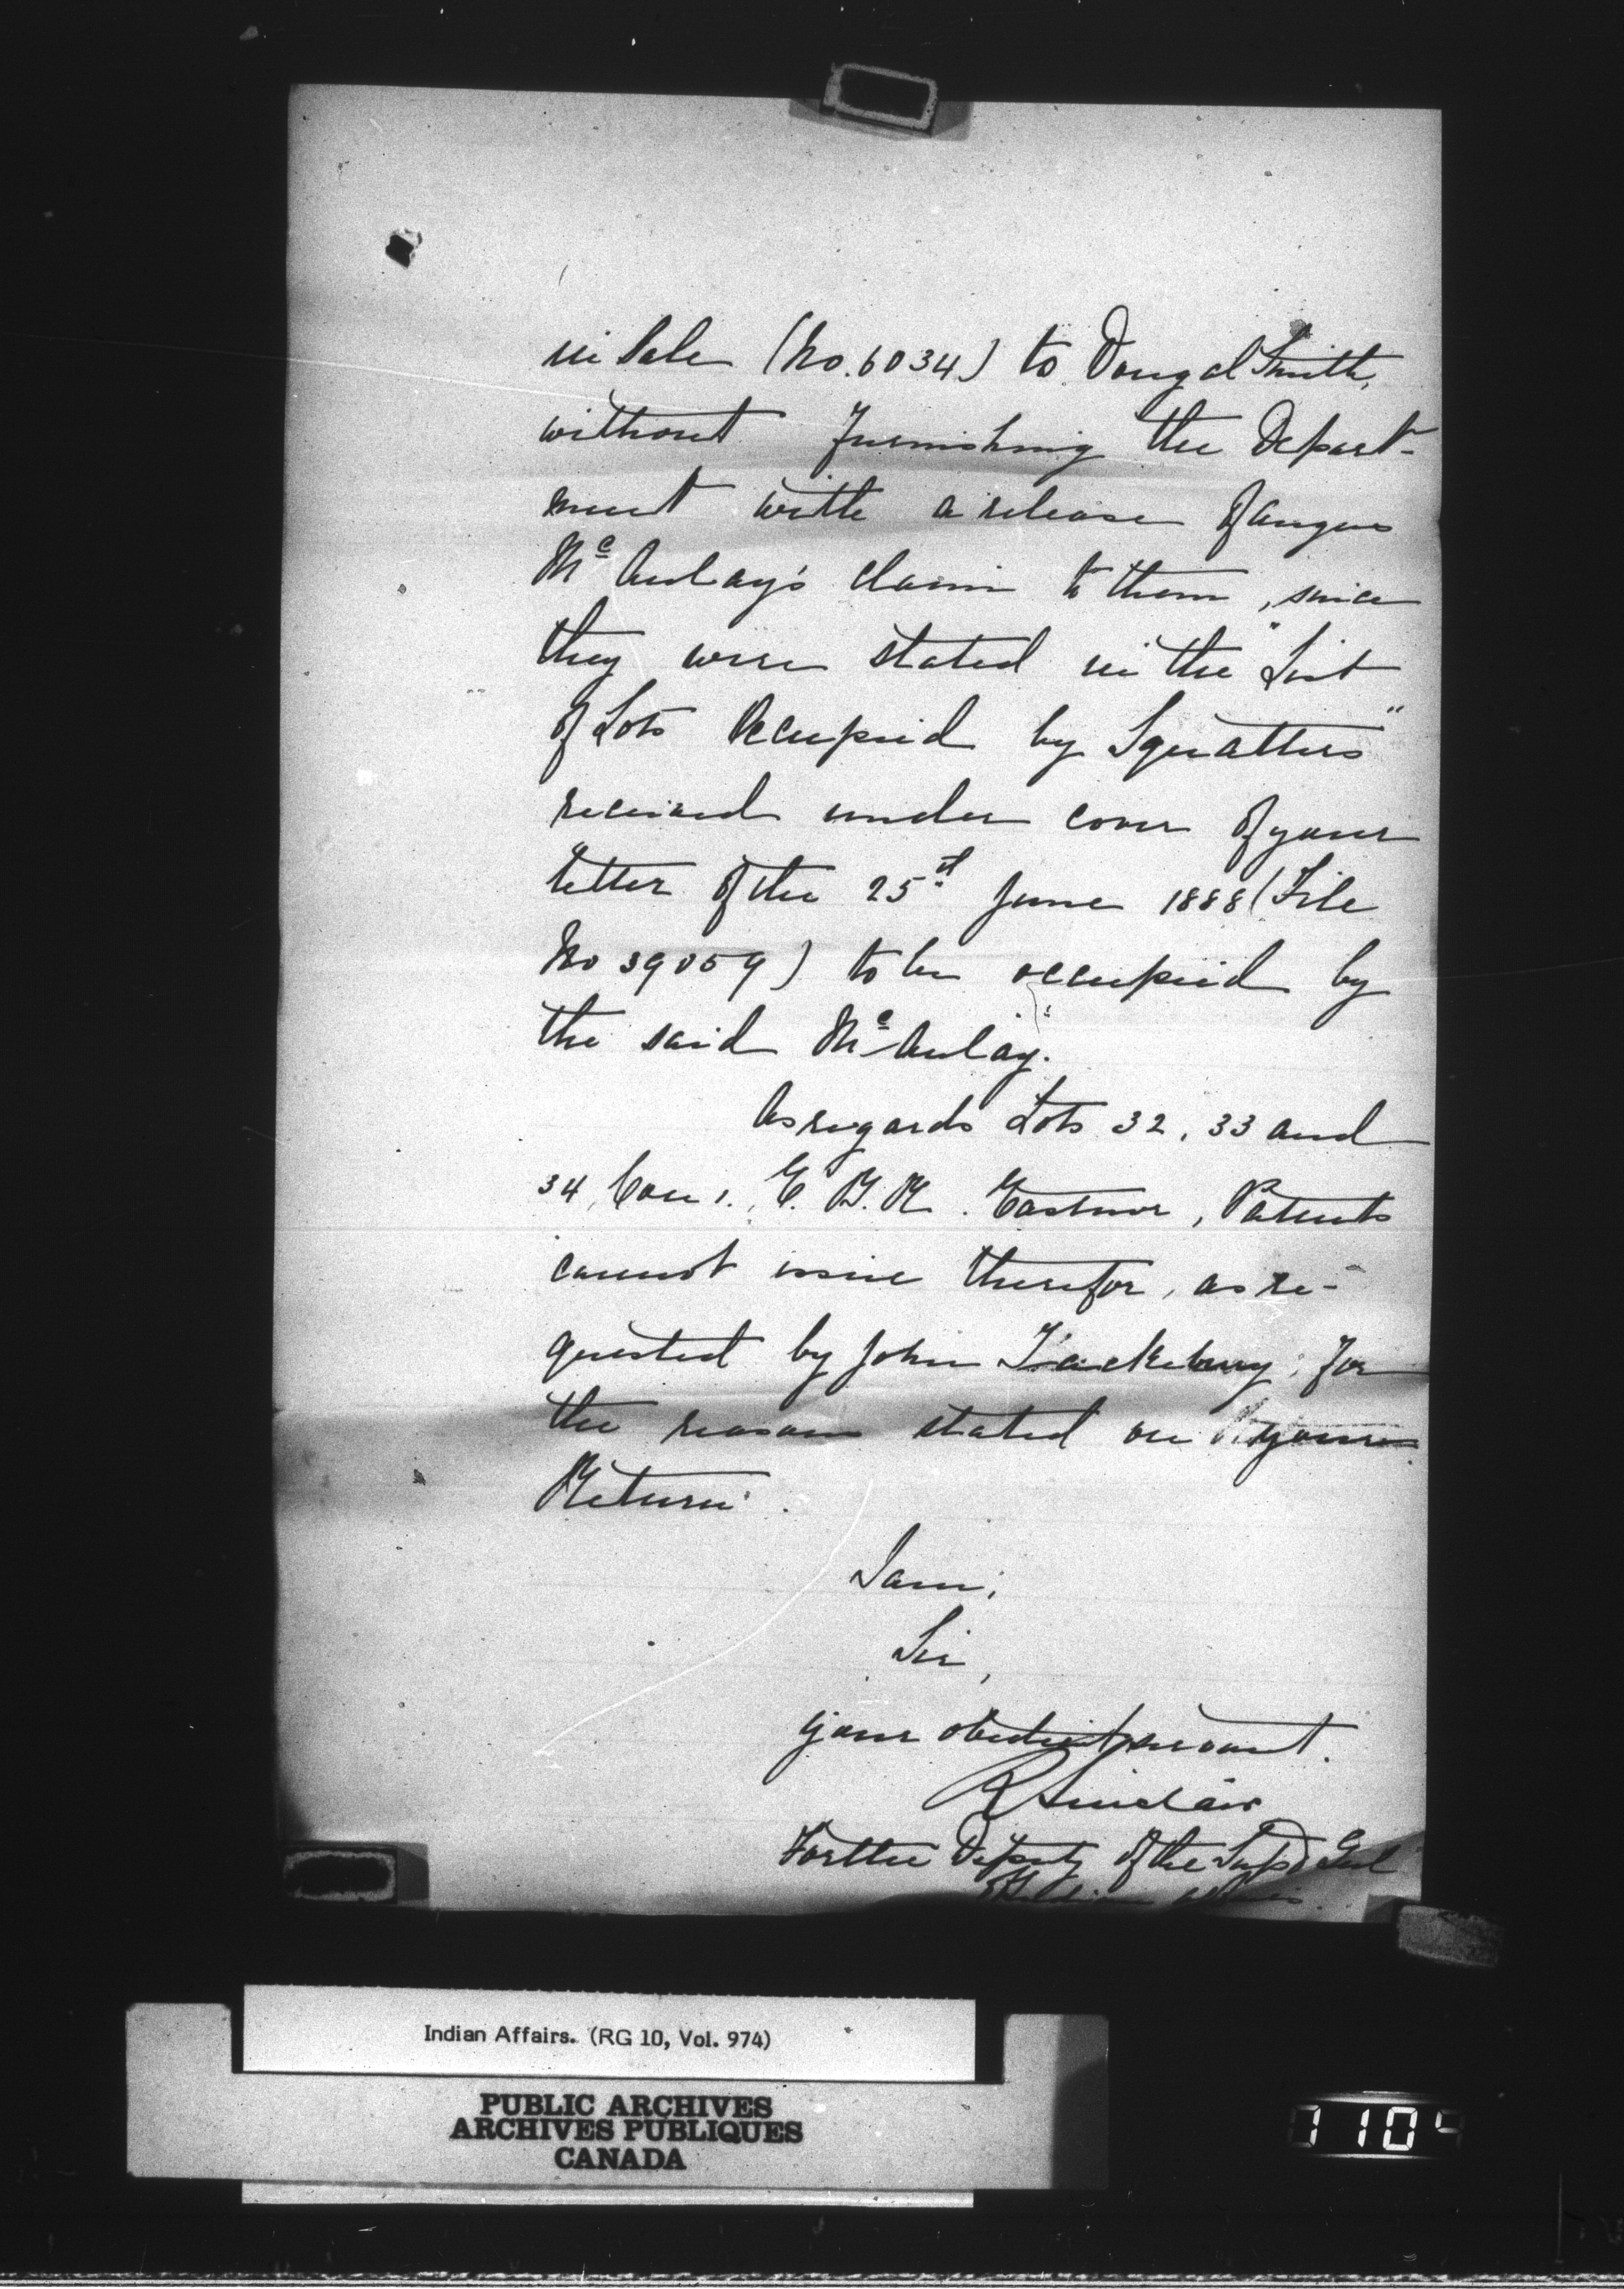 in Sale (No. 6034) to Dougal Smith,
without furnishing the Depart-
ment with a release of Angus
McAulay's claim to them, since
they were stated in the "List
of Lots Occupied by Squatters"
received under cover of your
letter of the 25th June 1888 (File
No 39059) to be occupied by
the said McAulay.
As regards Lots 32, 33 and
34, Con 1., E. B. R. Eastnor, Patents
cannot issue therefor, as re-
quested by John Hackebury, for
the reason stated on your
Return.
I am,
Sir,
Your obedient servant.
R Sinclair
For the Deputy of the Supt Genl
of Indian Affairs
Indian Affairs. (RG 10, Vol. 974)
PUBLIC ARCHIVES
ARCHIVES PUBLIQUES
CANADA